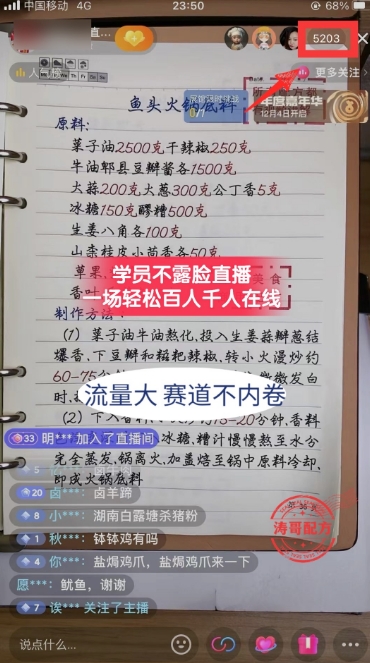 中国移动 4G
23:50
直...
5203
人气榜
更多关注
年度嘉年华
12月4日开启
鱼头火锅底料
原料:
菜子油2500克干辣椒250克
牛油郫县豆瓣酱各1500克
大蒜200克大葱300克公丁香5克
冰糖150克醪糟500克
生姜八角各100克
山柰桂皮小茴香各50克
草果,
香叶
美食
学员不露脸直播
一场轻松百人千人在线
制作方法:
(1) 菜子油牛油熬化,投入生姜蒜瓣葱结
爆香,下豆瓣和糍粑辣椒,转小火漫炒约
60-75分
微微发白
时,
流量大 赛道不内卷
(2) 下入香料
15-20分钟,香料
33 明*** 加入了直播间
冰糖,糟汁慢慢熬至水分
完全蒸发,锅离火,加盖焙至锅中原料冷却,
即成火锅底料
20 卤***: 卤羊蹄
8 小***: 湖南白露塘杀猪粉
1 秋***: 钵钵鸡有吗
4 你***: 盐焗鸡爪,盐焗鸡爪来一下
愿***: 鱿鱼,谢谢
7 诶*** 关注了主播
涛哥配方
说点什么...